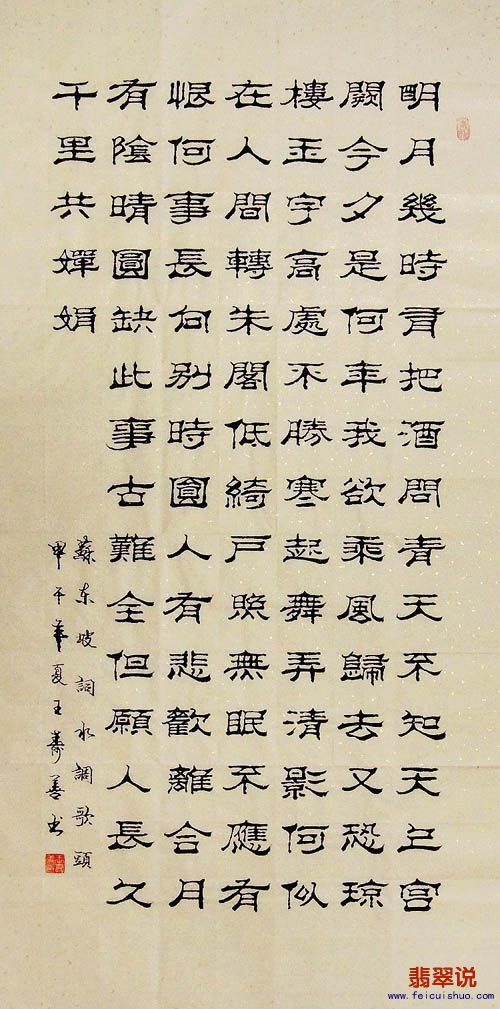 明月幾時有把酒問青天不知天上宮
闕今夕是何年我欲乘風歸去又恐琼
樓玉宇高處不勝寒起舞弄清影何似
在人間轉朱閣低綺戶照無眠不應有
恨何事長向別時圓人有悲歡離合月
有陰晴圓缺此事古難全但願人長久
千里共嬋娟
蘇東坡詞水調歌頭
甲午年夏王壽善书
翡翠说
www.feicuishuo.com